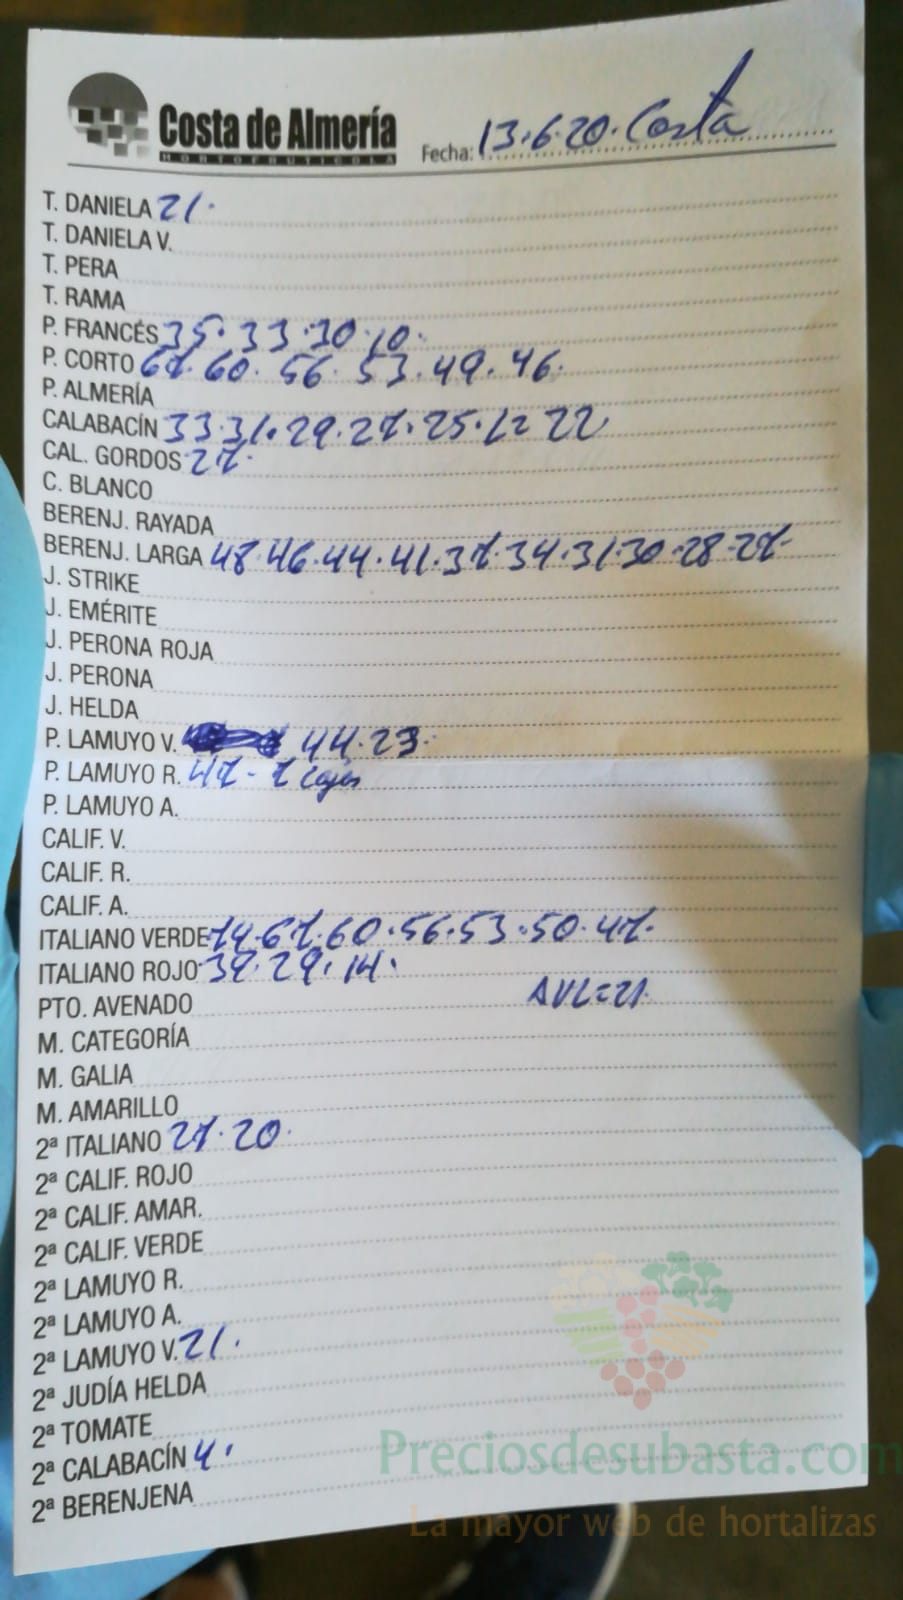 Costa de Almería
HORTOFRUTICOLA
Fecha: 13.6.20. Costa
T. DANIELA 21.
T. DANIELA V.
T. PERA
T. RAMA
P. FRANCÉS 35. 33. 30. 10.
P. CORTO 67. 60. 56. 53. 49. 46.
P. ALMERÍA
CALABACÍN 33. 31. 29. 27. 25. 22
CAL. GORDOS 27.
C. BLANCO
BERENJ. RAYADA
BERENJ. LARGA 48. 46. 44. 41. 37. 34. 31. 30. 28. 27.
J. STRIKE
J. EMÉRITE
J. PERONA ROJA
J. PERONA
J. HELDA
P. LAMUYO V. 44. 23.
P. LAMUYO R. 47 - 7 cajas
P. LAMUYO A.
CALIF. V.
CALIF. R.
CALIF. A.
ITALIANO VERDE 74. 67. 60. 56. 53. 50. 47.
ITALIANO ROJO 29. 14.
AVL=21.
PTO. AVENADO
M. CATEGORÍA
M. GALIA
M. AMARILLO
2ª ITALIANO 27. 20.
2ª CALIF. ROJO
2ª CALIF. AMAR.
2ª CALIF. VERDE
2ª LAMUYO R.
2ª LAMUYO A.
2ª LAMUYO V. 21.
2ª JUDÍA HELDA
2ª TOMATE
2ª CALABACÍN 4.
2ª BERENJENA
Preciosdesubasta.com
La mayor web de hortalizas